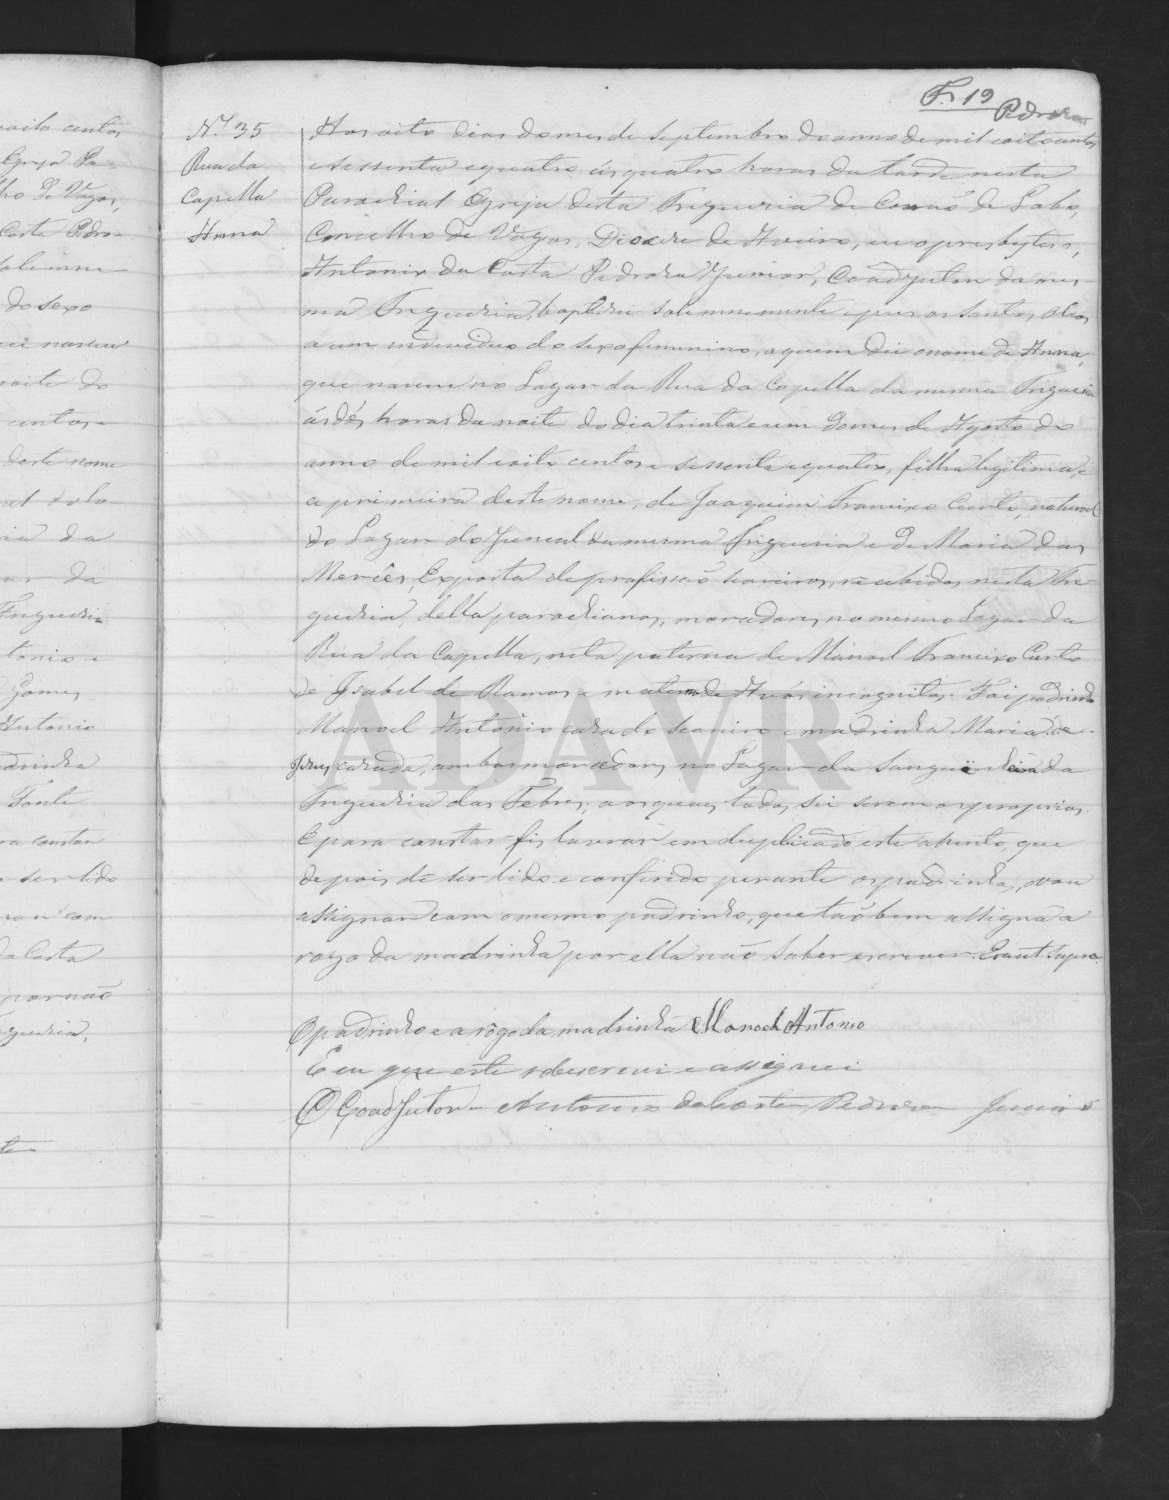 F. 19
Pedrosa
N.º 35
Rua da
Capella
Anna
Aos oito dias do mes de Septembro do anno de mil oito centos
e sessenta e quatro ás quatro horas da tarde nesta
Parochial Egreja desta Freguezia de Covaõ do Lobo,
Concelho de Vagos, Diocese de Aveiro, eu o presbytero,
Antonio da Costa Pedrosa Junior, Coadjutor da mes-
ma Freguezia, baptizei solemnemente e pus os Santos oleos
a um individuo do sexo femenino, a quem dei o nome de Anna,
que nasceu no Lugar da Rua da Capella da mesma Freguezia
ás dés horas da noite do dia trinta e um do mes de Agosto do
anno de mil oito centos e sessenta e quatro, filha legitima, e
a primeira deste nome, de Joaquim Francisco Curto, natural
do Lugar do Juncal da mesma Freguezia e de Maria das
Mercês, Exposta de profissaõ recebidos nesta Fre-
guezia, della parochianos, moradores no mesmo Lugar da
Rua da Capella, neta paterna de Manoel Francisco Curto
de Isabel de Ramos e materna de Avós incognitos. Foi padrinho
Manoel Antonio casado e madrinha Maria de
Jesus, casada, ambos moradores no Lugar da da
Freguezia das Febres, aos quaes todos sei serem os proprios.
E para constar fis lavrar em duplicado este assento, que
depois de ser lido e conferido perante os padrinhos, vou
assignar com o mesmo padrinho, que taõ bem assigna a
rogo da madrinha por ella naõ saber escrever. Era ut supra.
O padrinho e a rôgo da madrinha Manoel Antonio
E eu que este subscrevi e assignei
O Coadjutor - Antonio da Costa Pedrosa Junior
oito centos
Egreja Pa-
ho de Vagos,
Costa Pedro-
solemne
do sexo
nasceu
noite do
centos
deste nome
da
da
Freguezia
tonio e
Gomes,
Antonio
drinha
Fonte
ra constar
ser lido
com
da Costa
por naõ
guezia,
ADAVR